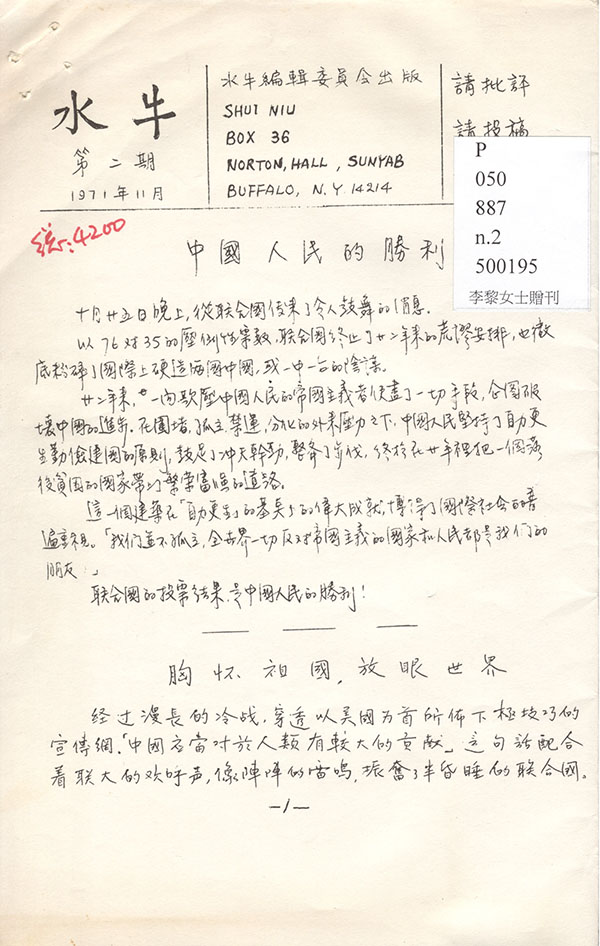 水牛
第二期
1971年11月
水牛編輯委員会出版
SHUI NIU
BOX 36
NORTON, HALL, SUNYAB
BUFFALO, N.Y 14214
請批評
請投稿
P
050
887
n.2
500195
李黎女士贈刊
4200
中國人民的勝利
十月廿五日晚上,從联合國傳來了令人鼓舞的消息。
以76对35的壓倒性票数,联合國終止了廿二年來的荒謬安排,也徹
底粉碎了國際上硬造両個中國,或一中一台的陰謀。
廿二年來,一向欺壓中國人民的帝國主義者使盡了一切手段,企图破
壞中國的進步。在圍堵,孤立,禁運,分化的外來壓力之下,中國人民堅持了自力更
生勤儉建國的原則,鼓足了冲天幹勁,整齊了步伐,終於在廿年裡把一個落
後貧困的國家帶上了繁榮富强的道路。
這一個建築在「自力更生」的基矣上的偉大成就,博得了國際社会的普
遍重視。「我们並不孤立,全世界一切反对帝國主義的國家和人民都是我们的
朋友。」
联合國的投票結果,是中國人民的勝利!
胸怀祖國,放眼世界
経过漫長的冷战,穿透以美國为首所佈下極技巧的
宣傳網,「中國应當对於人類有較大的貢献」這句話配合
着联大的欢呼声,像陣陣的雷鳴,振奮了半昏睡的联合國。
-1-